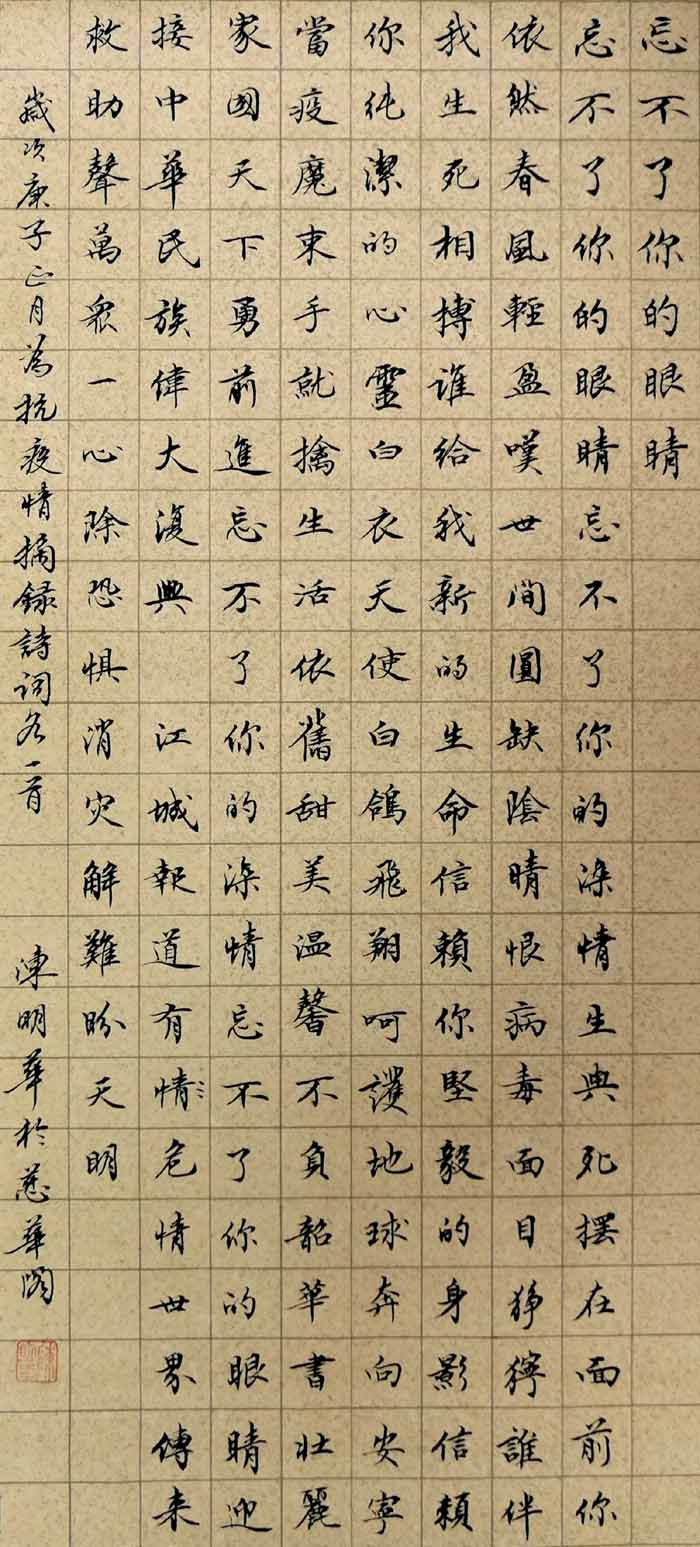 忘不了你的眼睛
忘不了你的眼睛忘不了你的深情生與死擺在面前你
依然春風輕盈嘆世間圓缺陰晴恨病毒面目猙獰誰伴
我生死相搏誰給我新的生命信賴你堅毅的身影信賴
你純潔的心靈白衣天使白鴿飛翔呵護地球奔向安寧
當疫魔束手就擒生活依舊甜美温馨不負韶華書壯麗
家國天下勇前進忘不了你的深情忘不了你的眼睛迎
接中華民族偉大復興 江城報道有情〻危情世界傳来
救助聲萬衆一心除恐懼消灾解難盼天明
歲次庚子正月為抗疫情摘録詩詞各一首 陳明華於慈華閣